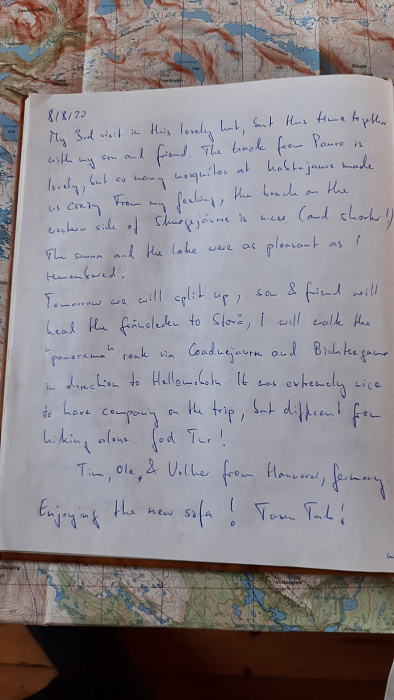 8/8/20
My 3rd visit in this lovely hut, but this time together
with my son and friend. The track from Pauro is
lovely, but so many mosquitos at habbajaure made
us crazy. From my feeling, the track on the
western side of is nicer (and shorter!)
The sauna and the lake were as pleasant as I
remembered.
Tomorrow we will split up, son & friend will
head the gränsleden to Storå, I will walk the
"panorama" route via and
in direction to Hellemobotn. It was extremely nice
to have company on the trip, but different from
hiking alone. God Tur!
Tim, Ole, & Volker from Hannover, Germany
Enjoying the new sofa! Tusen Takk!